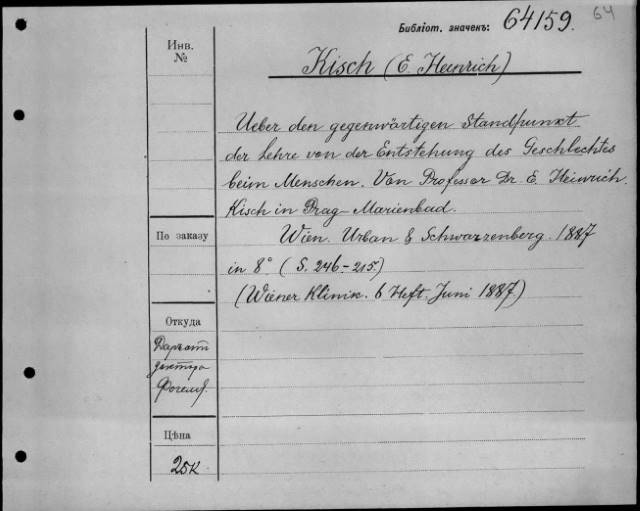 Библіот. значенъ: 64159. 64
Инв. №
Kisch (E. Heinrich)
Ueber den gegenwärtigen Standpunkt
der Lehre von der Entstehung des Geschlechtes
beim Menschen. Von Professor Dr. E. Heinrich
Kisch in Prag-Marienbad.
По заказу
Wien. Urban & Schwarzenberg. 1887
in 8° (S. 246-215.)
(Wiener Klinik. 6 Heft. Juni 1887.)
Откуда
доктора
Цѣна
25к